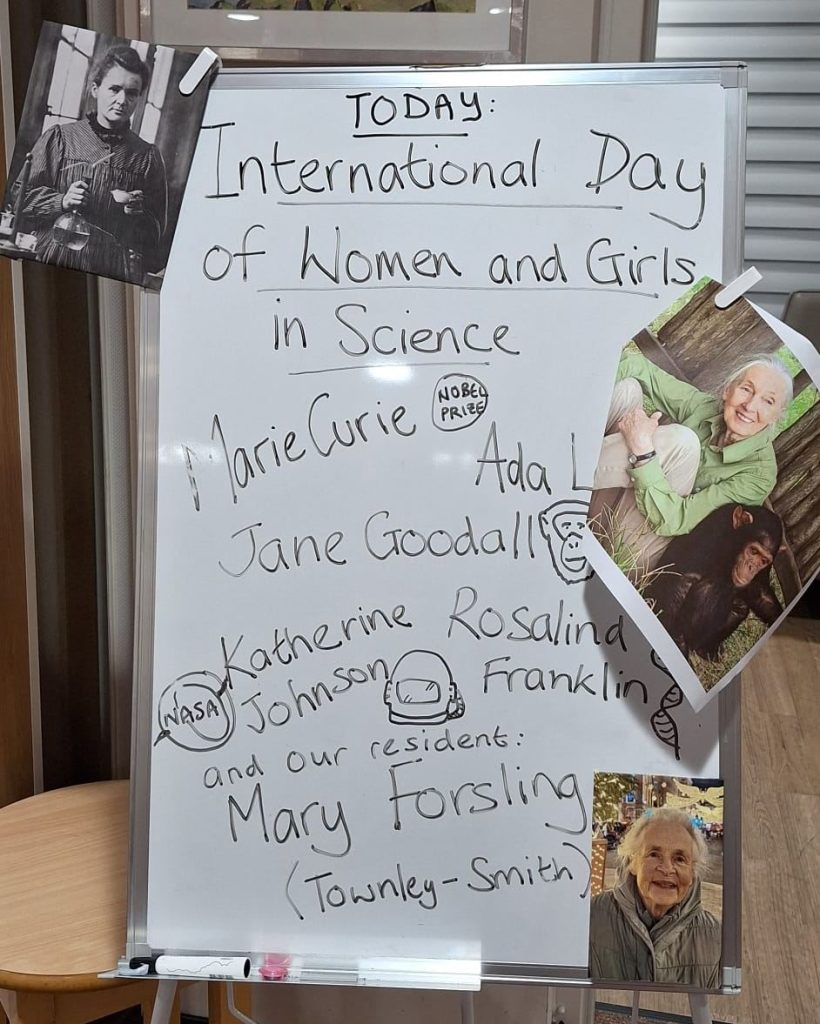 TODAY:
International Day
of Women and Girls
in Science
Marie Curie
NOBEL
PRIZE
Ada L
Jane Goodall
Katherine
Johnson
NASA
Rosalind
Franklin
and our resident:
Mary Forsling
(Townley-Smith)